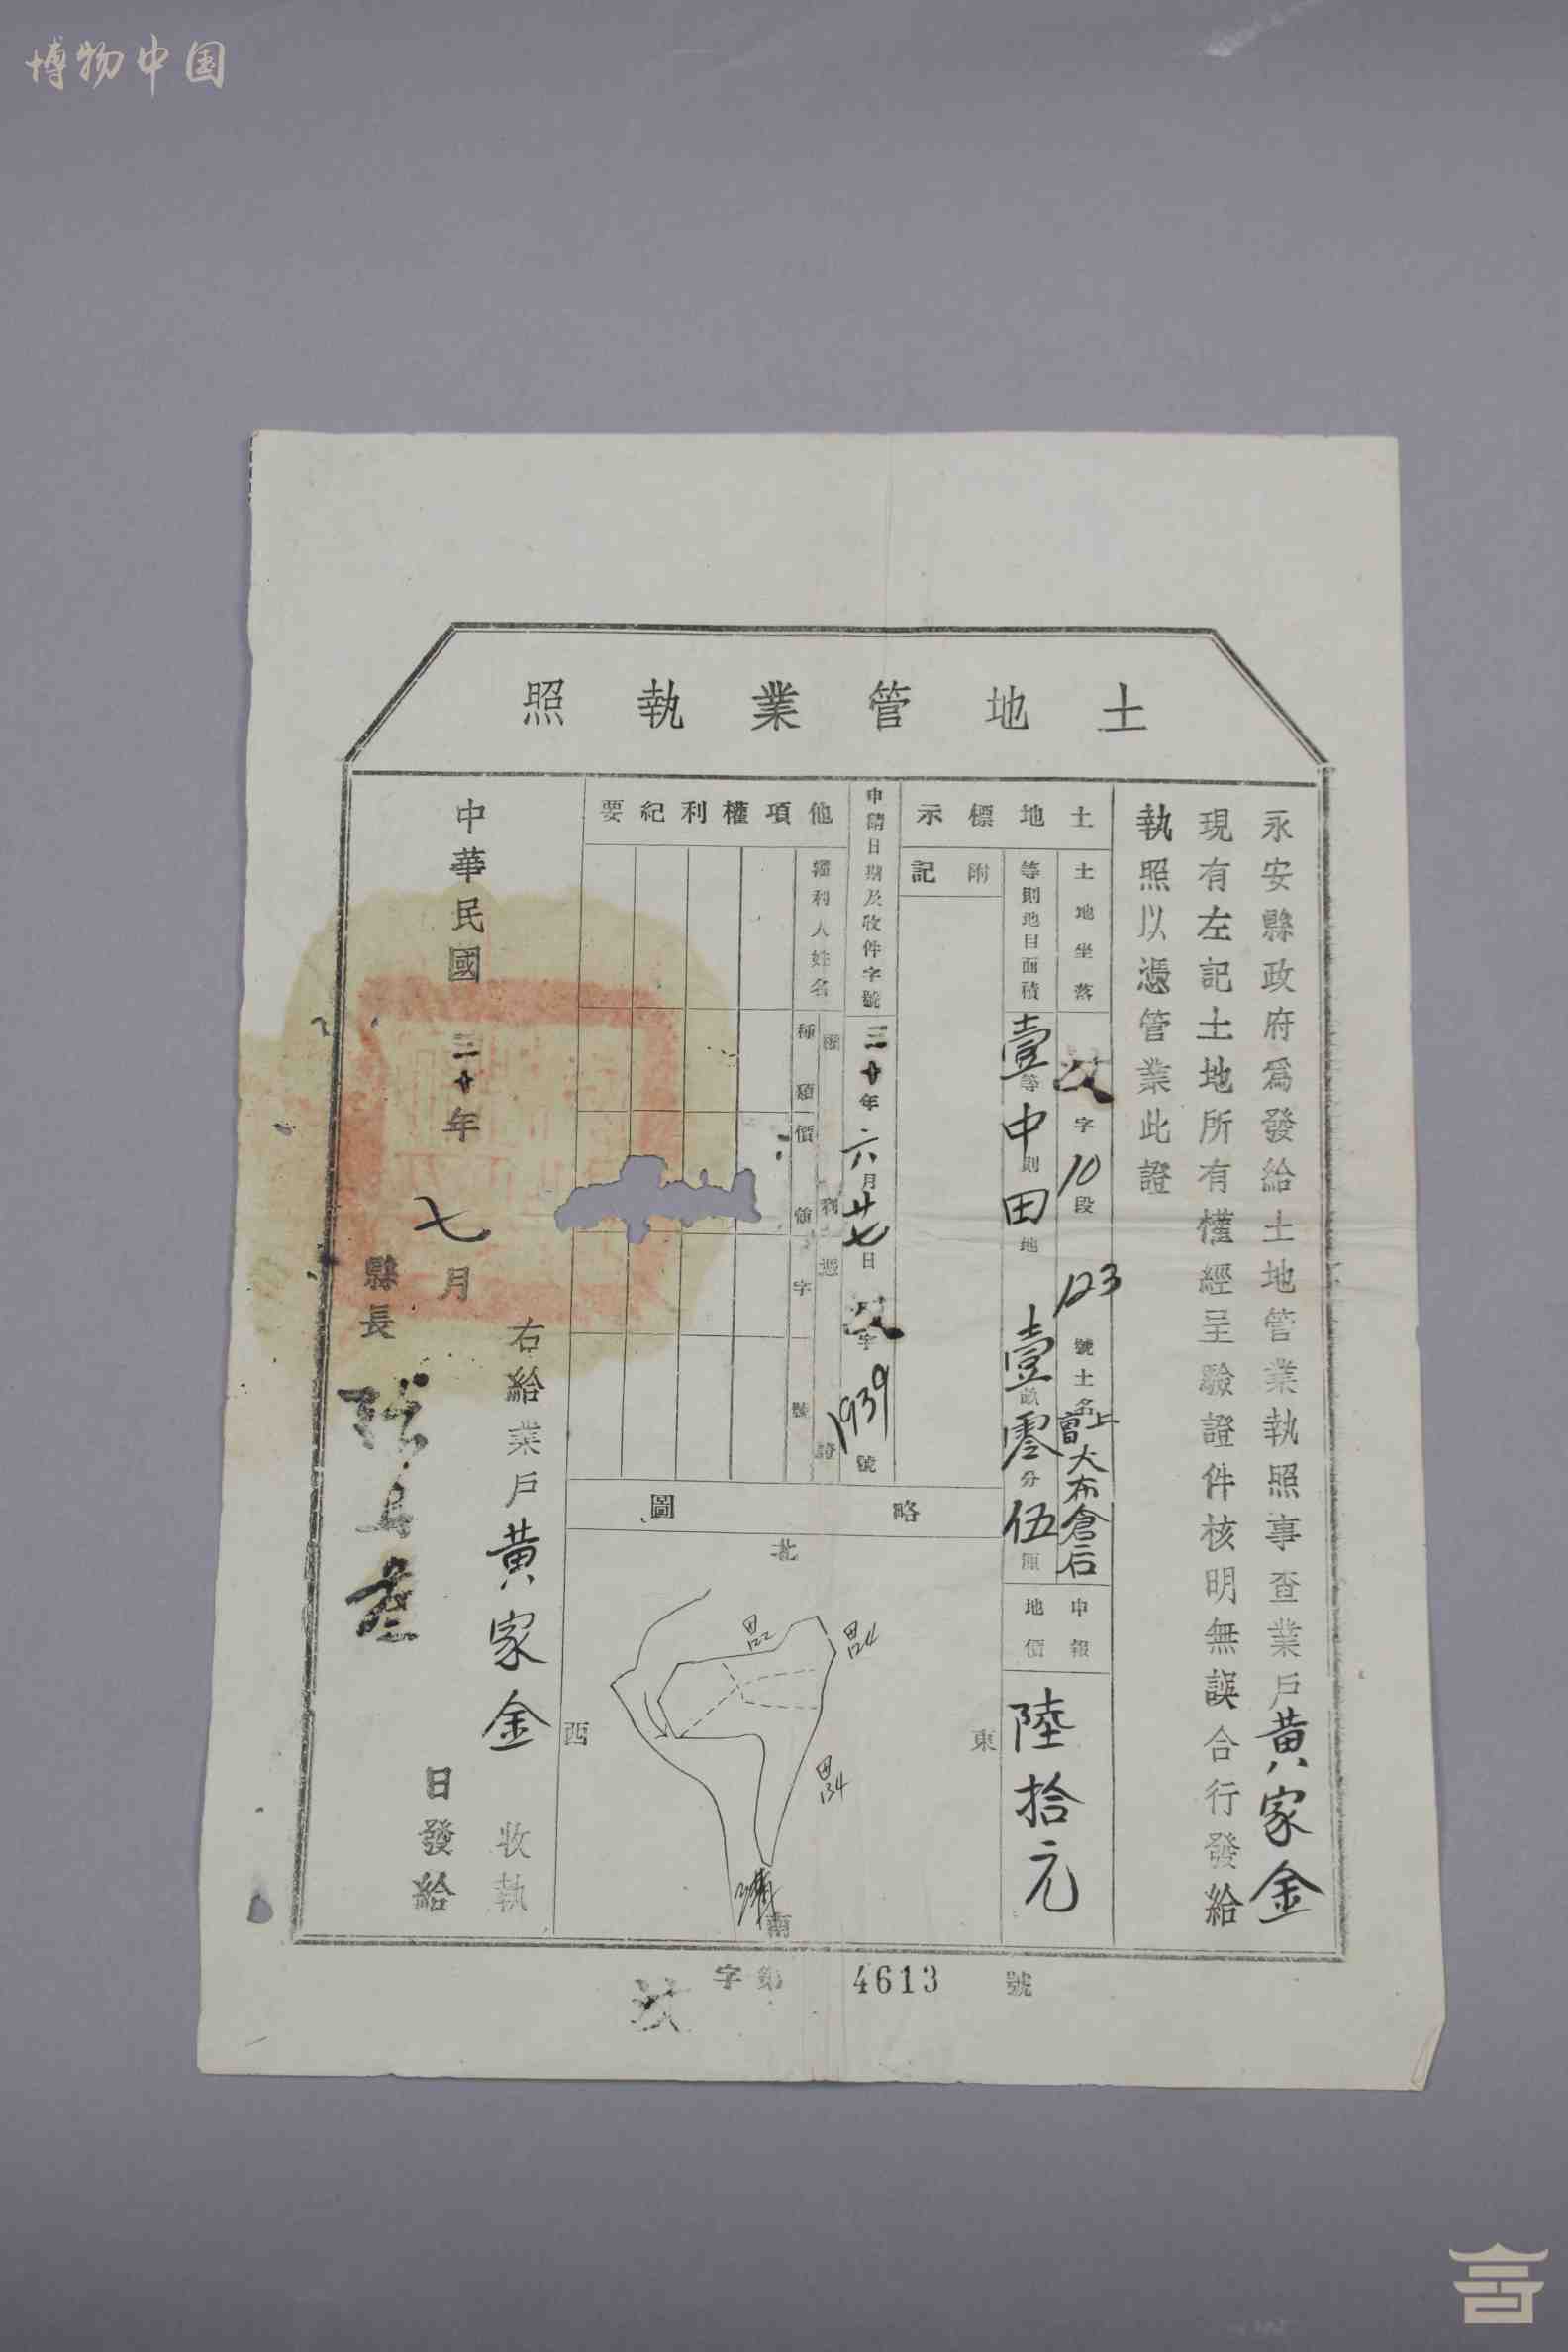 博物中国
土地管業執照
永安縣政府爲發給土地管業執照事查業戶黃家金
現有左記土地所有權經呈驗證件核明無誤合行發給
執照以憑管業此證
土地標示
土地坐落
字10段
123號土名
大布倉后
等則地目面積
壹等中則田地
壹畝零分伍厘
附記
申報地價
陸拾元
申請日期及收件字號
三十年六月廿七日
字1939號
他項權利紀要
權利人姓名
權利憑證
種類
價值
字號
略圖
北
東
南
西
田122
田124
田134
右給業戶黃家金收執
中華民國三十年七月
日發給
縣長
字第4613號